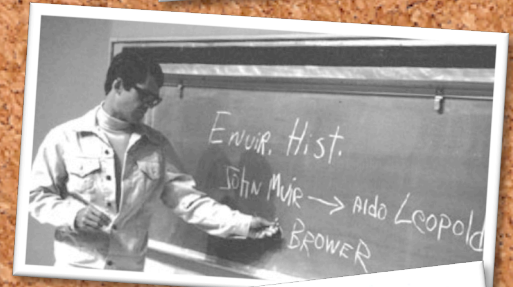 Envir. Hist.
John Muir → Aldo Leopold
BROWER